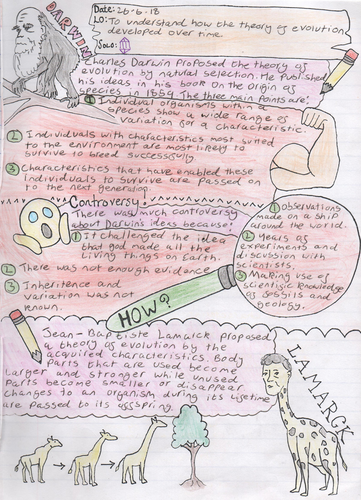 DARWIN
Date: 26-6-18
LO: To understand how the theory of evolution
developed over time.
Solo:
Charles Darwin proposed the theory of
evolution by natural selection. He published
his ideas in his book On the Origin of
species in 1859. The three main points are:
① Individual organisms within a
species show a wide range of
variation for a characteristic.
② Individuals with characteristics most suited
to the environment are most likely to
survive to breed successfully.
③ Characteristics that have enabled these
individuals to survive are passed on
to the next generation.
Controversy!
There was much controversy
about Darwin's ideas because:
① It challenged the idea
that god made all the
living things on Earth.
② There was not enough evidence
③ Inheritence and
variation was not
known.
HOW?
① Observations
made on a ship
around the world.
② Years of
experiments and
discussion with
scientists.
③ Making use of
scientific knowledge
of fossils and
geology.
Jean-Baptiste Lamarck proposed
a theory of evolution by the
acquired characteristics. Body
parts that are used become
larger and stronger while unused
parts become smaller or disappear
changes to an organism during its lifetime
are passed to its offspring.
LAMARCK